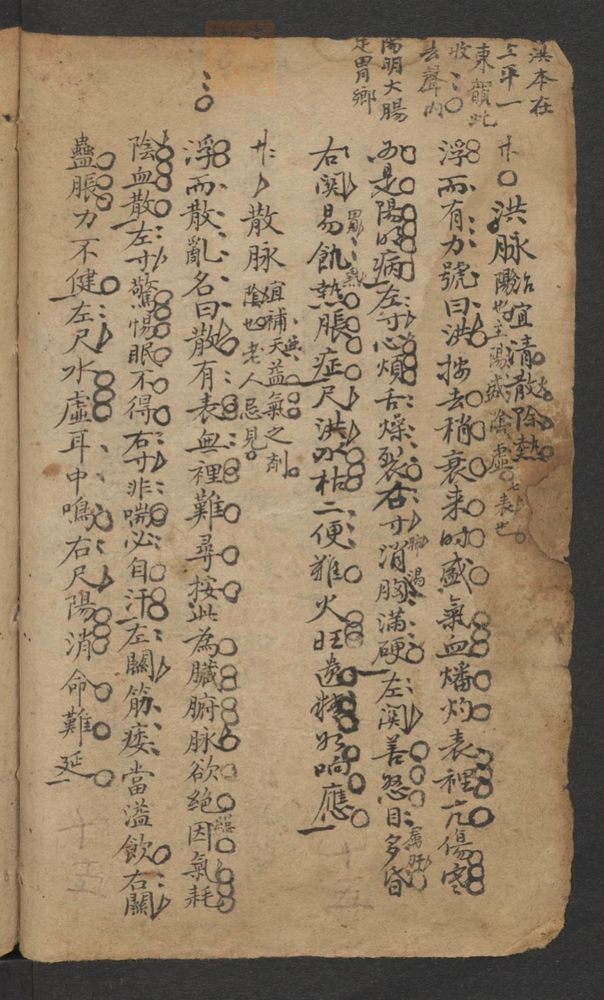 洪本在
上平一
東韻此
收
去聲內
陽明大腸
是胃鄉
卄 洪脉 陽也主陽盛陰虛 七表也 宜清散除熱
浮而有力號曰洪按去稍衰来時盛氣血燔灼表裡亢傷寒
陽明病左寸心煩舌燥裂右寸消胸滿硬左関善怒目多昏
右関易飢熱脹症尺洪水枯二便难火旺遺精如响應
廿 散脉 陰也老人忌見 宜補天益氣之剤
浮而散亂名曰散有表無裡難尋按此為臟腑脉欲绝因氣耗
陰血散左寸驚惕眠不得右寸非喘必自汗左關筋痿當溢飲右關
蠱脹力不健左尺水虛耳中鳴右尺陽消命難延
十五
十五